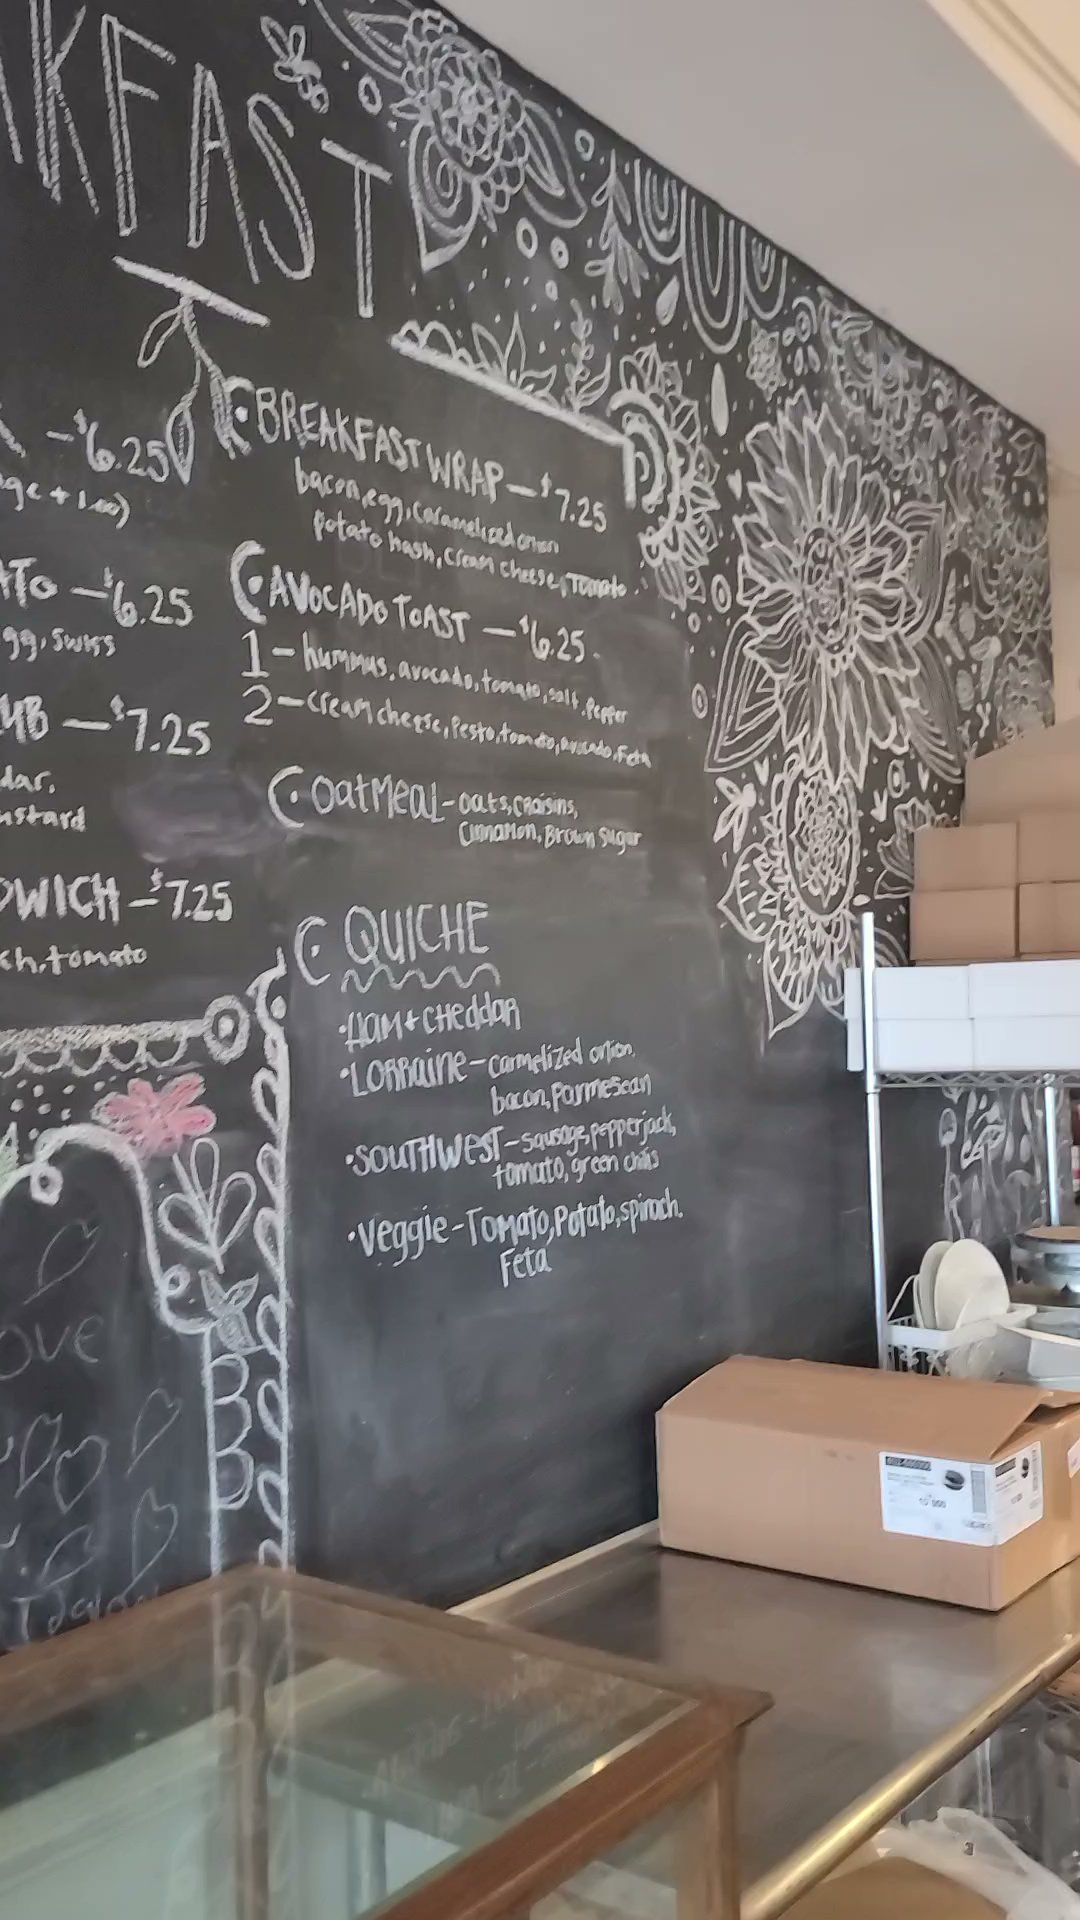 FAST
- $6.25
+ 1.00)
- $6.25
egg, Swiss
- $7.25
- $7.25
tomato
BREAKFAST WRAP - $7.25
bacon, egg, caramelized onion
potato hash, cream cheese, Tomato.
AVOCADO TOAST - $6.25
1 - hummus, avocado, tomato, salt, Pepper
2 - cream cheese, Pesto, tomato, avocado, Feta
OatMeal - oats, craisins,
Cinnamon, Brown Sugar
QUICHE
• HAM + CHeddar
• LORRaine - carmelized onion,
bacon, Parmesean
• SOUTHWEST - sausage, pepperjack,
tomato, green chilis
• Veggie - Tomato, Potato, spinach,
Feta